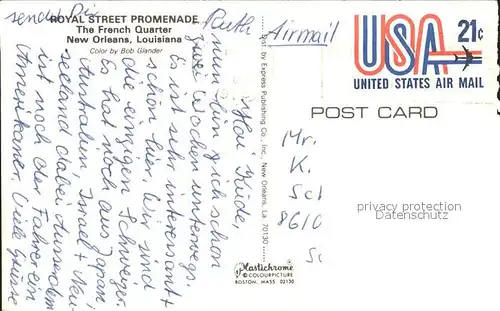 ROYAL STREET PROMENADE
The French Quarter
New Orleans, Louisiana
Color by Bob Glander
nun bin ich schon
zwei Wochen unterwegs.
Es ist sehr interessant +
schön hier. Wir sind
die einzigen Schweizer.
Es hat noch aus Japan,
Australien, Israel + Neu-
seeland dabei. Ausserdem
ist noch der Fahrer ein
Amerikaner. Viele Grüsse
sendet Dir
Ruth
Dist. by Express Publishing Co., Inc., New Orleans, La. 70130
Plastichrome
© COLOURPICTURE
BOSTON, MASS 02130
Airmail
USA 21¢
UNITED STATES AIR MAIL
POST CARD
Mr.
K.
8610
privacy protection
watermarks